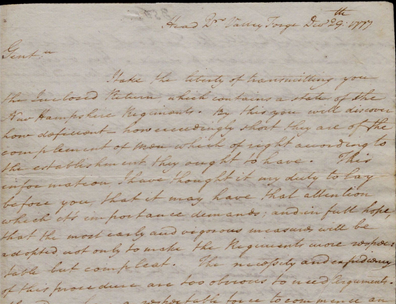 Head Qrs Valley Forge Decr 29th 1777
Gentn
Take the liberty of transmitting you
the Inclosed Return, which contains a state of the
New Hampshire Regiments. By this you will discover
how deficient, how exceedingly short they are of the
complement of men which of right according to
the establishment they ought to have. This
information I have thought it my duty to lay
before you, that it may have that attention
which its importance demands; and in full hope,
that the most early and vigorous measures will be
adopted not only to make the Regiments more respec=
table but compleat. The necessity and expediency
of this procedure are too obvious to need Arguments.
a respectable force to commence an